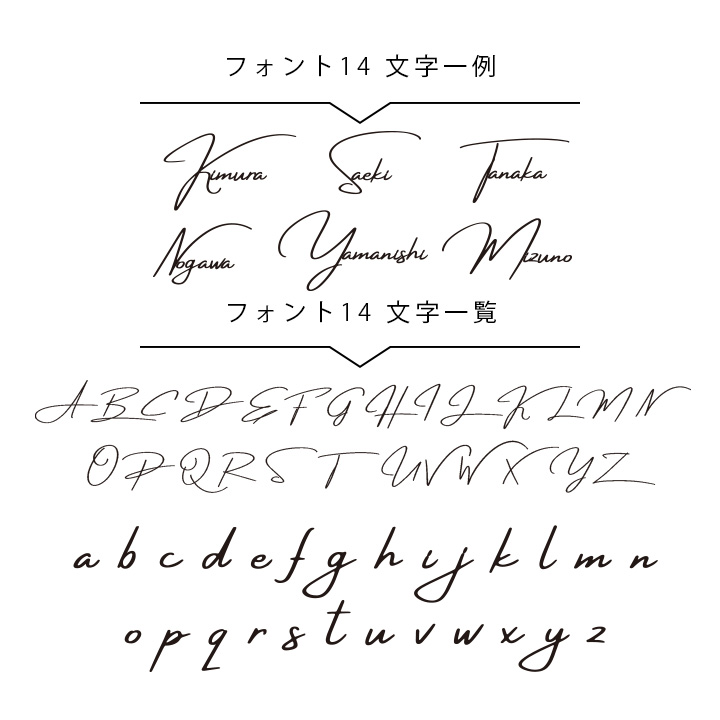 フォント14 文字一例
Kimura Saeki Tanaka
Nogawa Yamanishi Mizuno
フォント14 文字一覧
A B C D E F G H I J K L M N
O P Q R S T U V W X Y Z
a b c d e f g h i j k l m n
o p q r s t u v w x y z